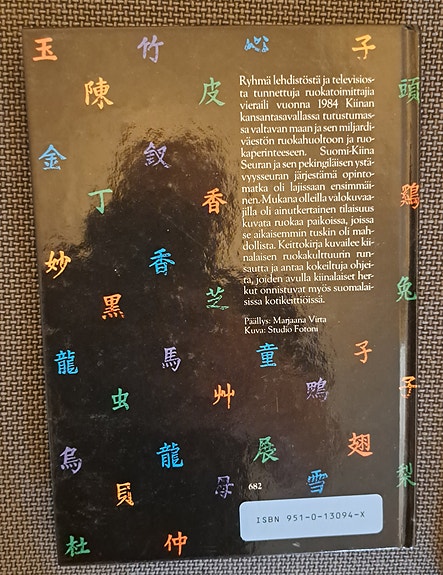 玉 竹 心 子
陳 皮 頭
金 釵
丁 香 鷄
妙 香
黒 芝 兔
龍 馬 童 子
虫 艸 鴨 子
烏 龍 展 翅
貝 母 雪 梨
杜 仲
Ryhmä lehdistöstä ja televisios-
ta tunnettuja ruokatoimittajia
vieraili vuonna 1984 Kiinan
kansantasavallassa tutustumas-
sa valtavan maan ja sen miljardi-
väestön ruokahuoltoon ja ruo-
kaperinteeseen. Suomi-Kiina
Seuran ja sen pekingiläisen ystä-
vyysseuran järjestämä opinto-
matka oli lajissaan ensimmäi-
nen. Mukana olleilla valokuvaa-
jilla oli ainutkertainen tilaisuus
kuvata ruokaa paikoissa, joissa
se aikaisemmin tuskin oli mah-
dollista. Keittokirja kuvailee kii-
nalaisen ruokakulttuurin run-
sautta ja antaa kokeiltuja ohjei-
ta, joiden avulla kiinalaiset her-
kut onnistuvat myös suomalai-
sissa kotikeittiöissä.
Päällys: Marjaana Virta
Kuva: Studio Fotoni
682
ISBN 951-0-13094-X